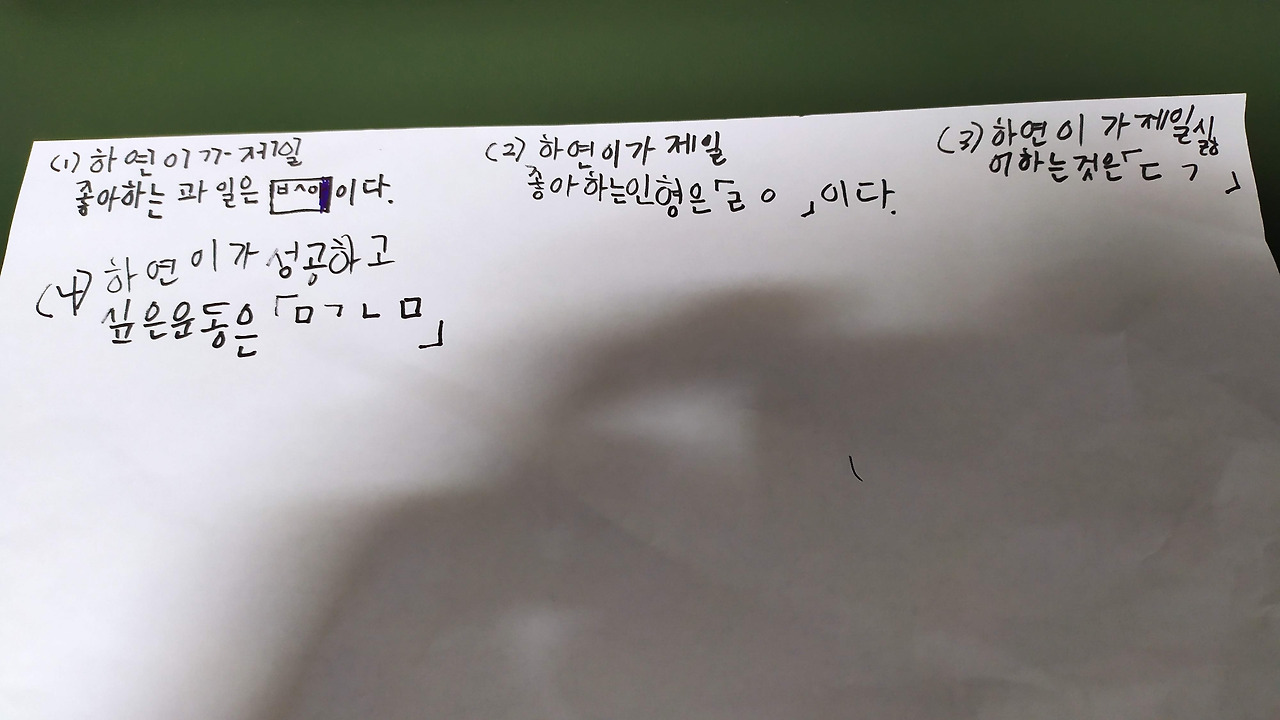 (1) 하연이가 제일
좋아하는 과일은 ㅂㅅㅇ이다.
(2) 하연이가 제일
좋아하는인형은「ㄹㅇ」이다.
(3) 하연이가제일싫
어하는것은「ㄷㄱ」
(4) 하연이가성공하고
싶은운동은「ㅁㄱㄴㅁ」